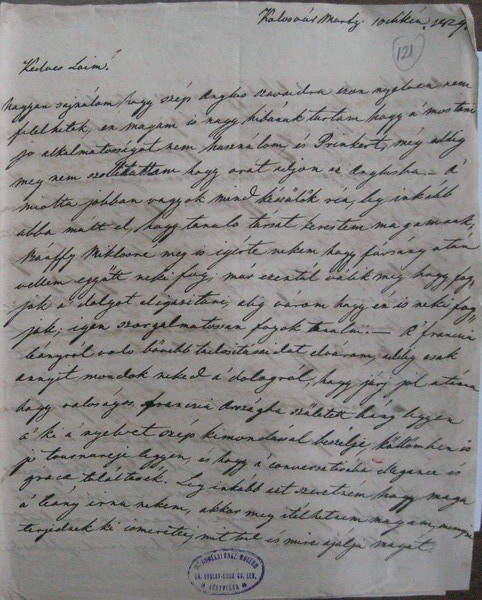 Kolosvár Martz. 10dikén. 1829.
121
Kedves Laim!
nagyon sajnálom hogy szép Anglus szavaidra ezen nyelven nem
felelhetek, en magam is nagy hibának tartom hogy a mostani
jo alkalmatosságot nem használom és Prinkert, még eddig
meg nem szollitattam hogy orat adjon az Anglusba. — A
miolta jobban vagyok mind készülök réa, leg inkább
abba mult el, hogy tanulo társat kerestem magamnak,
Bánffy Miklosne meg is igérte nekem hogy fársáng utan
velem együtt neki fog; mar ezentul válik meg hogy fog-
juk a dolgot eligazitani, alig várom hogy en is neki fog-
jak; igen szorgalmatossan fogok tanulni. — A francia
leányról valo bővebb tudositásaidat elvárom, addig csak
annyit mondok neked a dologról, hogy járj jol utánna
hogy valoságos francia Országba született leány legyen
a' ki a nyelvet szép kimondással beszélje, külömben is
jo tournureje legyen, és hogy a conversatioba elegance és
grace találtassék. Leg inkább azt szeretném hogy maga
a' leány irna nekem, akkor meg itélhetném magam, mennyire
terjednek ki ismeretei, mit tud és mire ajálja magát.
AZ ERDÉLYI
LEV.